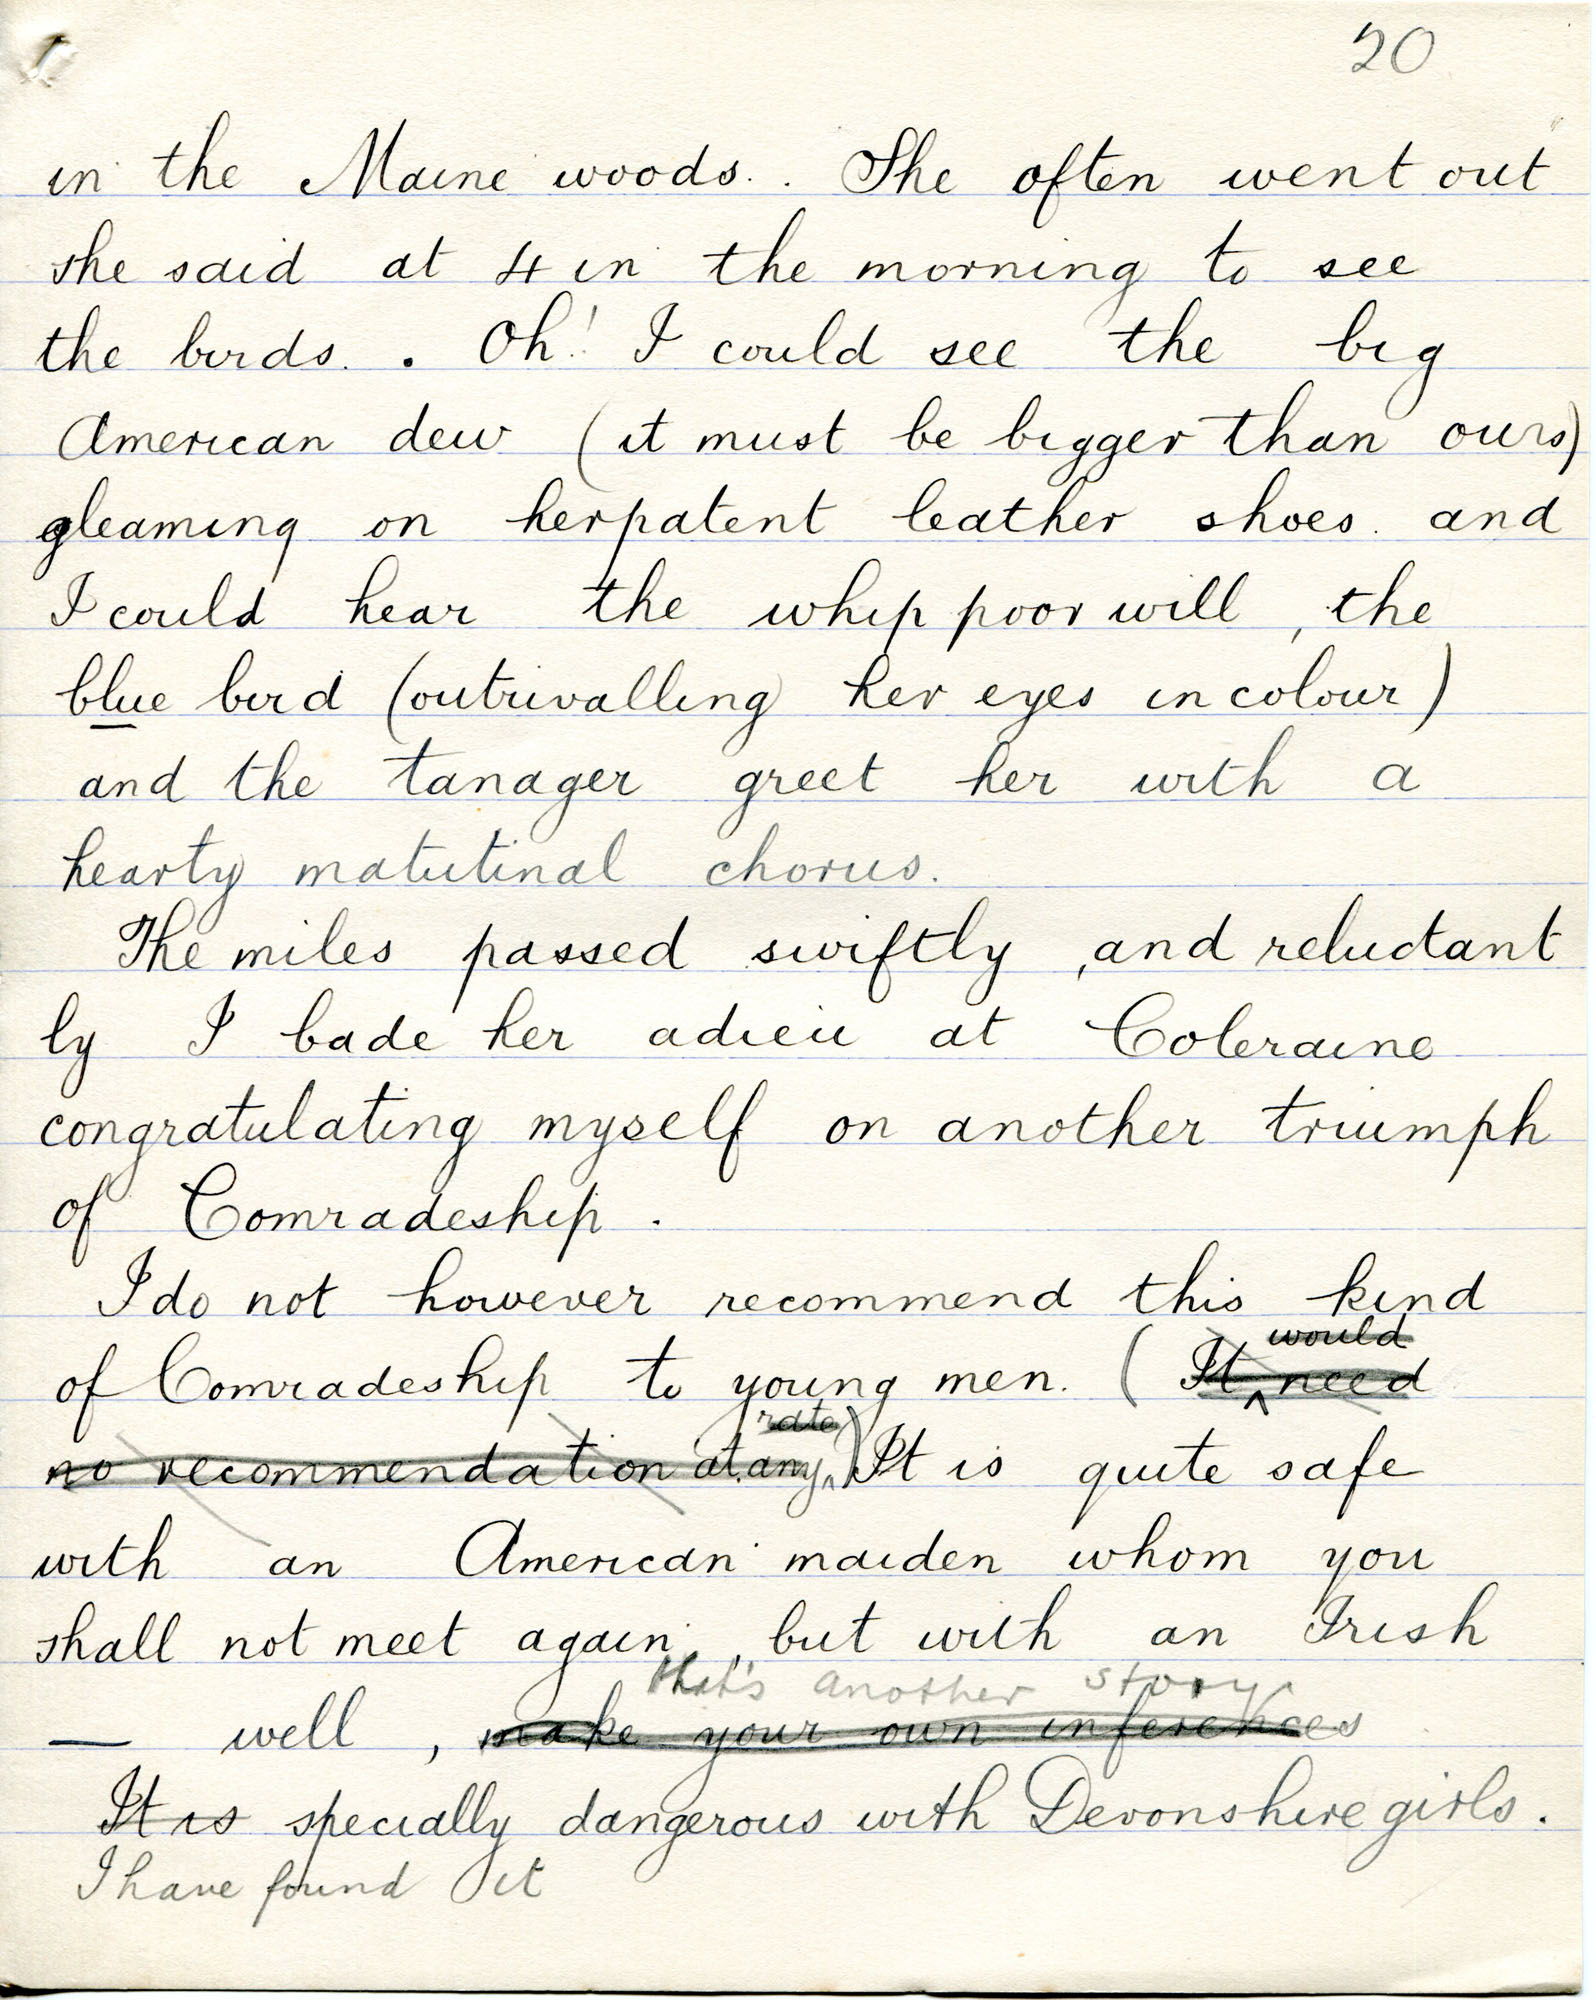 20
in the Maine woods.. She often went out
she said at 4 in the morning to see
the birds. . Oh! I could see the big
American dew (it must be bigger than ours)
gleaming on her patent leather shoes. and
I could hear the whip poor will, the
blue bird (outrivalling her eyes in colour)
and the tanager greet her with a
hearty matutinal chorus.
The miles passed swiftly, and reluctant
ly I bade her adieu at Coleraine
congratulating myself on another triumph
of Comradeship.
I do not however recommend this kind
would
of Comradeship to young men. ( It ^ need
rate
no recommendation at any ^ ) It is quite safe
with an American maiden whom you
shall not meet again, but with an Irish
that's another story
— well, make your own inferences
It is specially dangerous with Devonshire girls.
I have found it